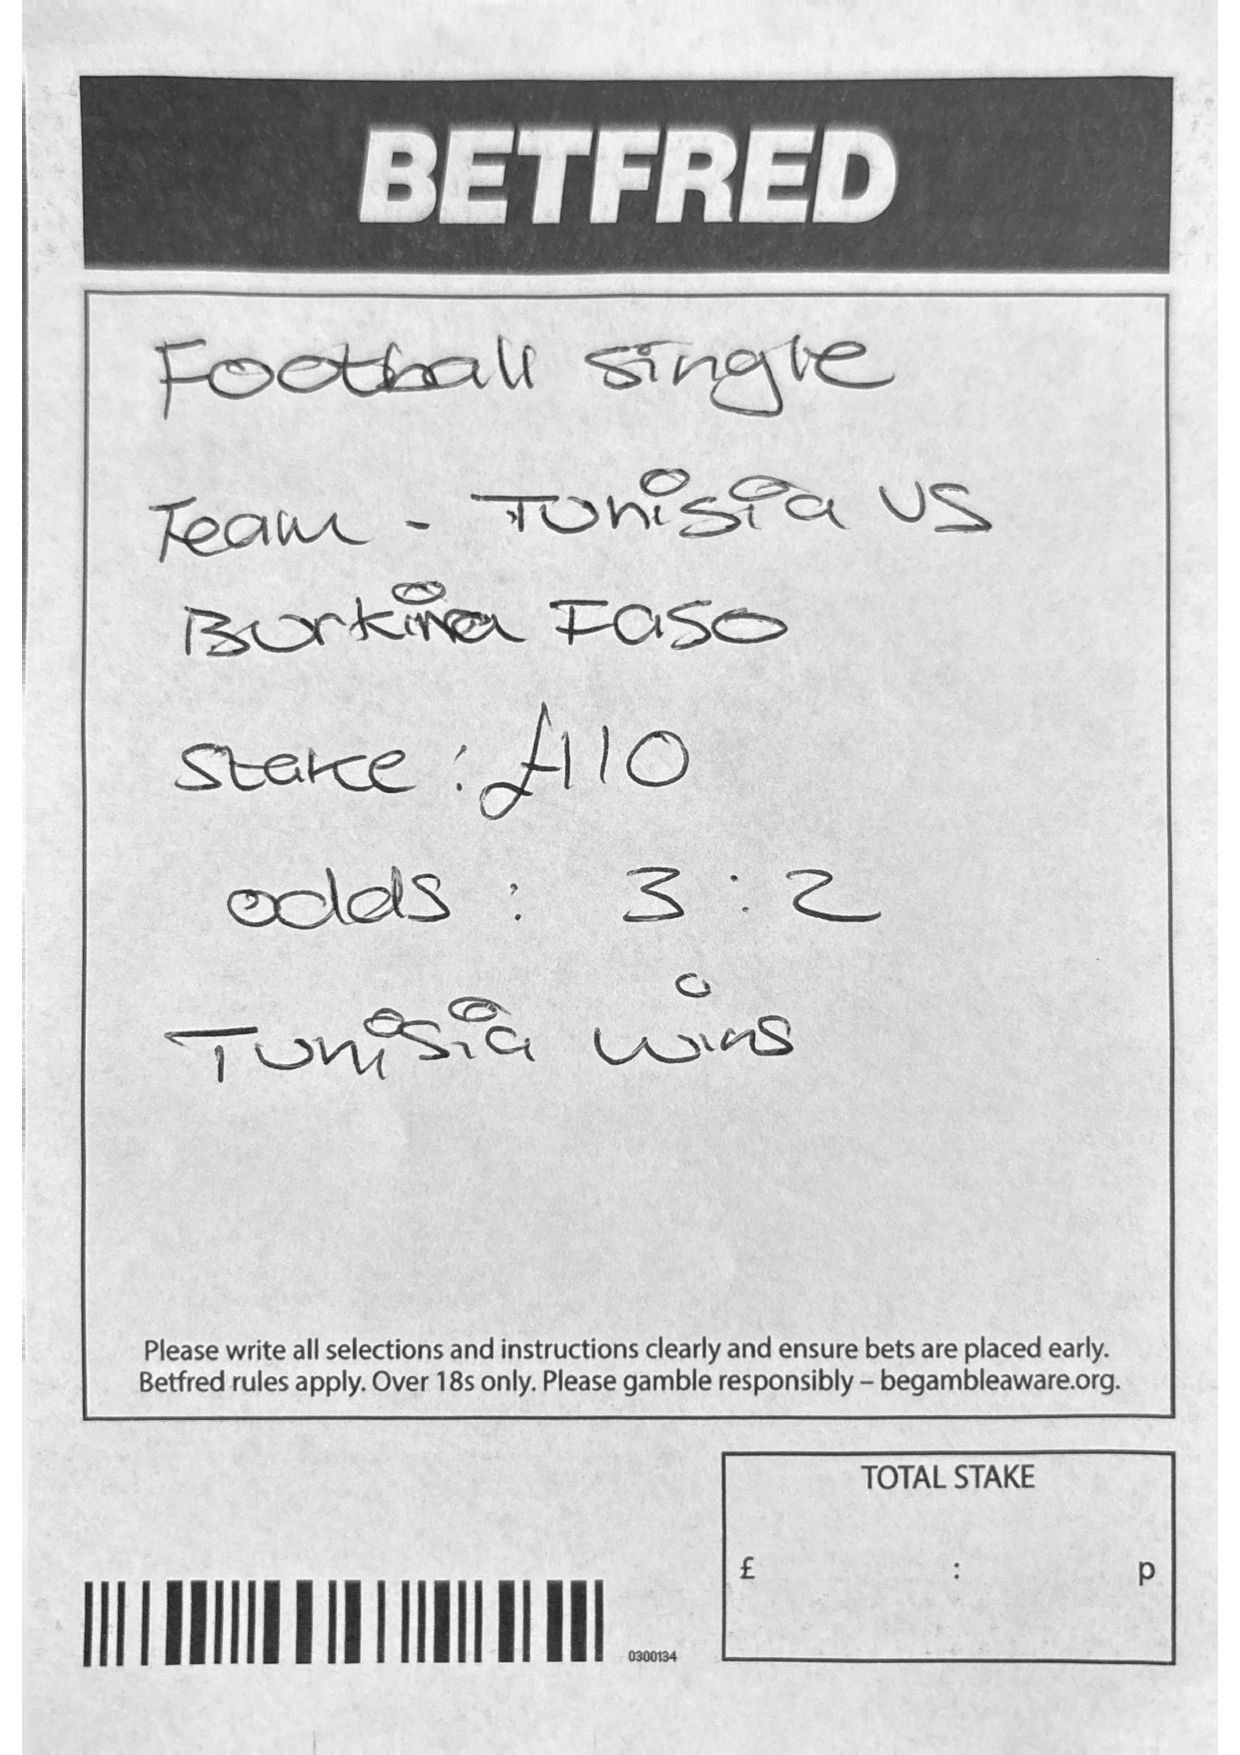 BETFRED
Football single
Team - Tunisia VS
Burkina Faso
Stake : £110
odds : 3 : 2
Tunisia wins
Please write all selections and instructions clearly and ensure bets are placed early.
Betfred rules apply. Over 18s only. Please gamble responsibly – begambleaware.org.
TOTAL STAKE
£ : p
0300134